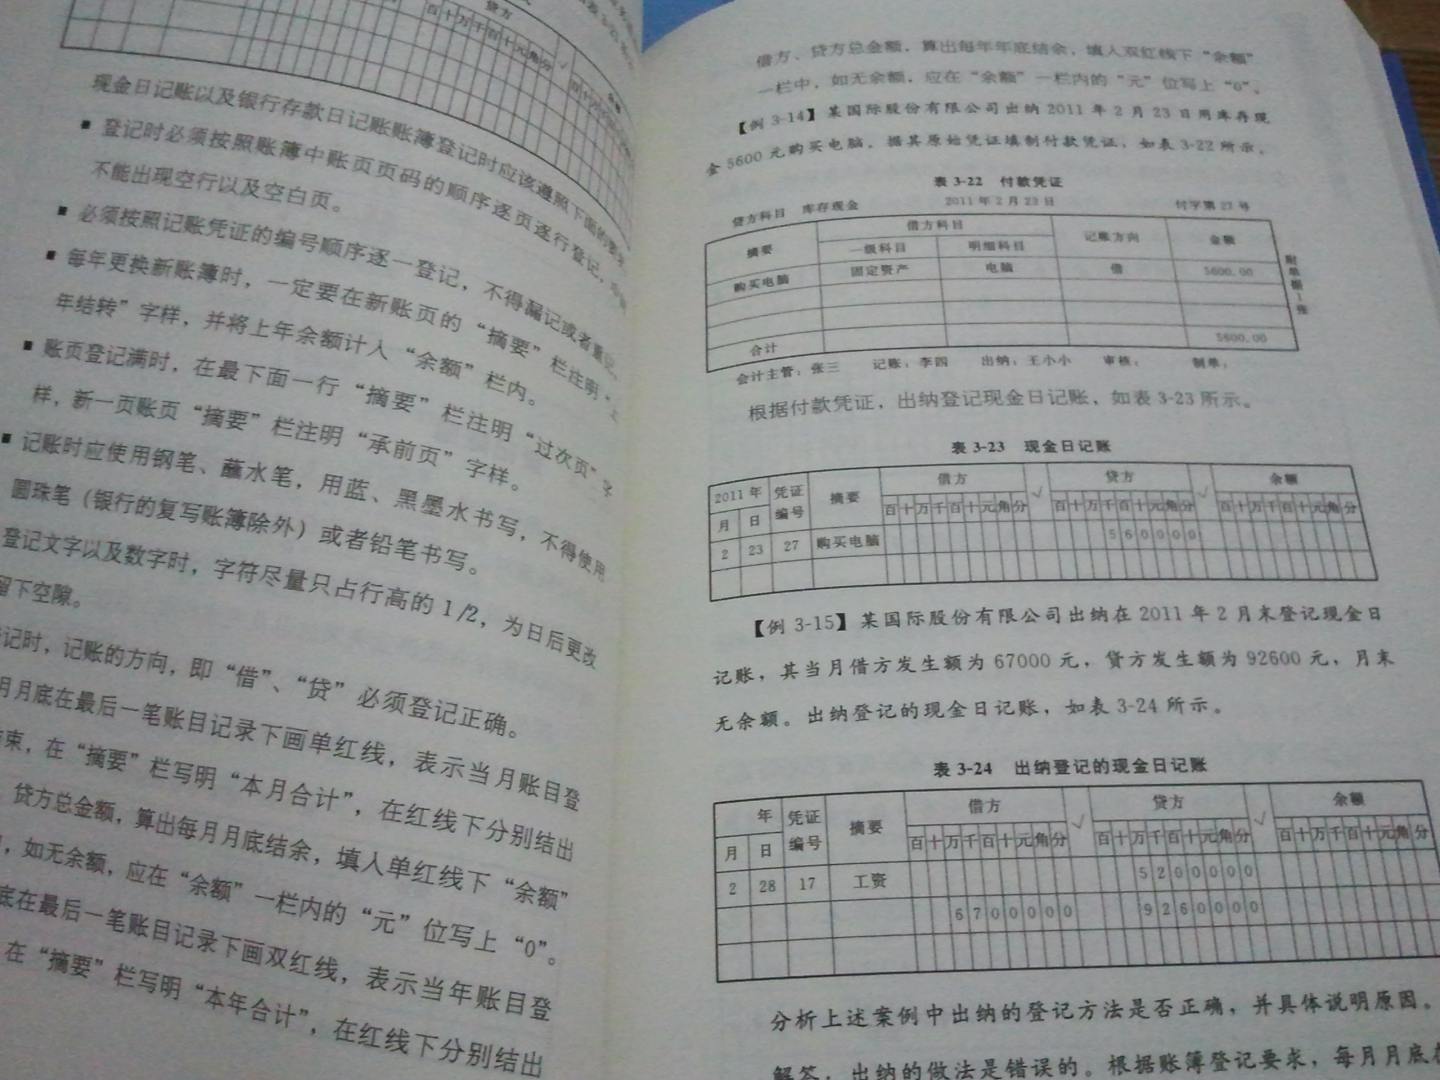 贷方
百十万千百十元角分 √
余额
现金日记账以及银行存款日记账账簿登记时应该遵照下面的要求
■ 登记时必须按照账簿中账页页码的顺序逐页逐行登记，
不能出现空行以及空白页。
■ 必须按照记账凭证的编号顺序逐一登记，不得漏记或者重记。
■ 每年更换新账簿时，一定要在新账页的“摘要”栏注明“上
年结转”字样，并将上年余额计入“余额”栏内。
■ 账页登记满时，在最下面一行“摘要”栏注明“过次页”字
样，新一页账页“摘要”栏注明“承前页”字样。
■ 记账时应使用钢笔、蘸水笔，用蓝、黑墨水书写，不得使用
圆珠笔（银行的复写账簿除外）或者铅笔书写。
登记文字以及数字时，字符尽量只占行高的1/2，为日后更改
留下空隙。
记时，记账的方向，即“借”、“贷”必须登记正确。
月月底在最后一笔账目记录下画单红线，表示当月账目登
束，在“摘要”栏写明“本月合计”，在红线下分别结出
贷方总金额，算出每月月底结余，填入单红线下“余额”
，如无余额，应在“余额”一栏内的“元”位写上“0”。
底在最后一笔账目记录下画双红线，表示当年账目登
在“摘要”栏写明“本年合计”，在红线下分别结出
借方、贷方总金额，算出每年年底结余，填入双红线下“余额”
一栏中，如无余额，应在“余额”一栏内的“元”位写上“0”。
【例 3-14】某国际股份有限公司出纳 2011 年 2 月 23 日用库存现
金 5600 元购买电脑。据其原始凭证填制付款凭证，如表 3-22 所示。
表 3-22 付款凭证
贷方科目 库存现金 2011 年 2 月 23 日 付字第 27 号
摘要 借方科目 记账方向 金额
一级科目 明细科目
购买电脑 固定资产 电脑 借 5600.00
合计 5600.00
附单据1张
会计主管：张三 记账：李四 出纳：王小小 审核： 制单：
根据付款凭证，出纳登记现金日记账，如表 3-23 所示。
表 3-23 现金日记账
2011 年 凭证编号 摘要 借方 √ 贷方 √ 余额
月 日 百十万千百十元角分 百十万千百十元角分 百十万千百十元角分
2 23 27 购买电脑 560000
【例 3-15】某国际股份有限公司出纳在 2011 年 2 月末登记现金日
记账，其当月借方发生额为 67000 元，贷方发生额为 92600 元，月末
无余额。出纳登记的现金日记账，如表 3-24 所示。
表 3-24 出纳登记的现金日记账
年 凭证编号 摘要 借方 √ 贷方 √ 余额
月 日 百十万千百十元角分 百十万千百十元角分 百十万千百十元角分
2 28 17 工资 5200000
6700000 9260000
分析上述案例中出纳的登记方法是否正确，并具体说明原因。
解答：出纳的做法是错误的。根据账簿登记要求，每月月底在